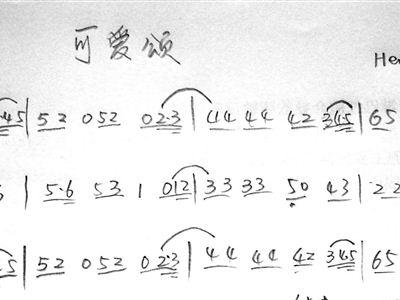 可爱颂
He
·45 | 52 052 02·3 | 44 44 42 345 | 65
| 5·6 53 1 012 | 33 33 50 43 | ·22
·5 | 52 052 02·3 | 44 44 42 345 | 65